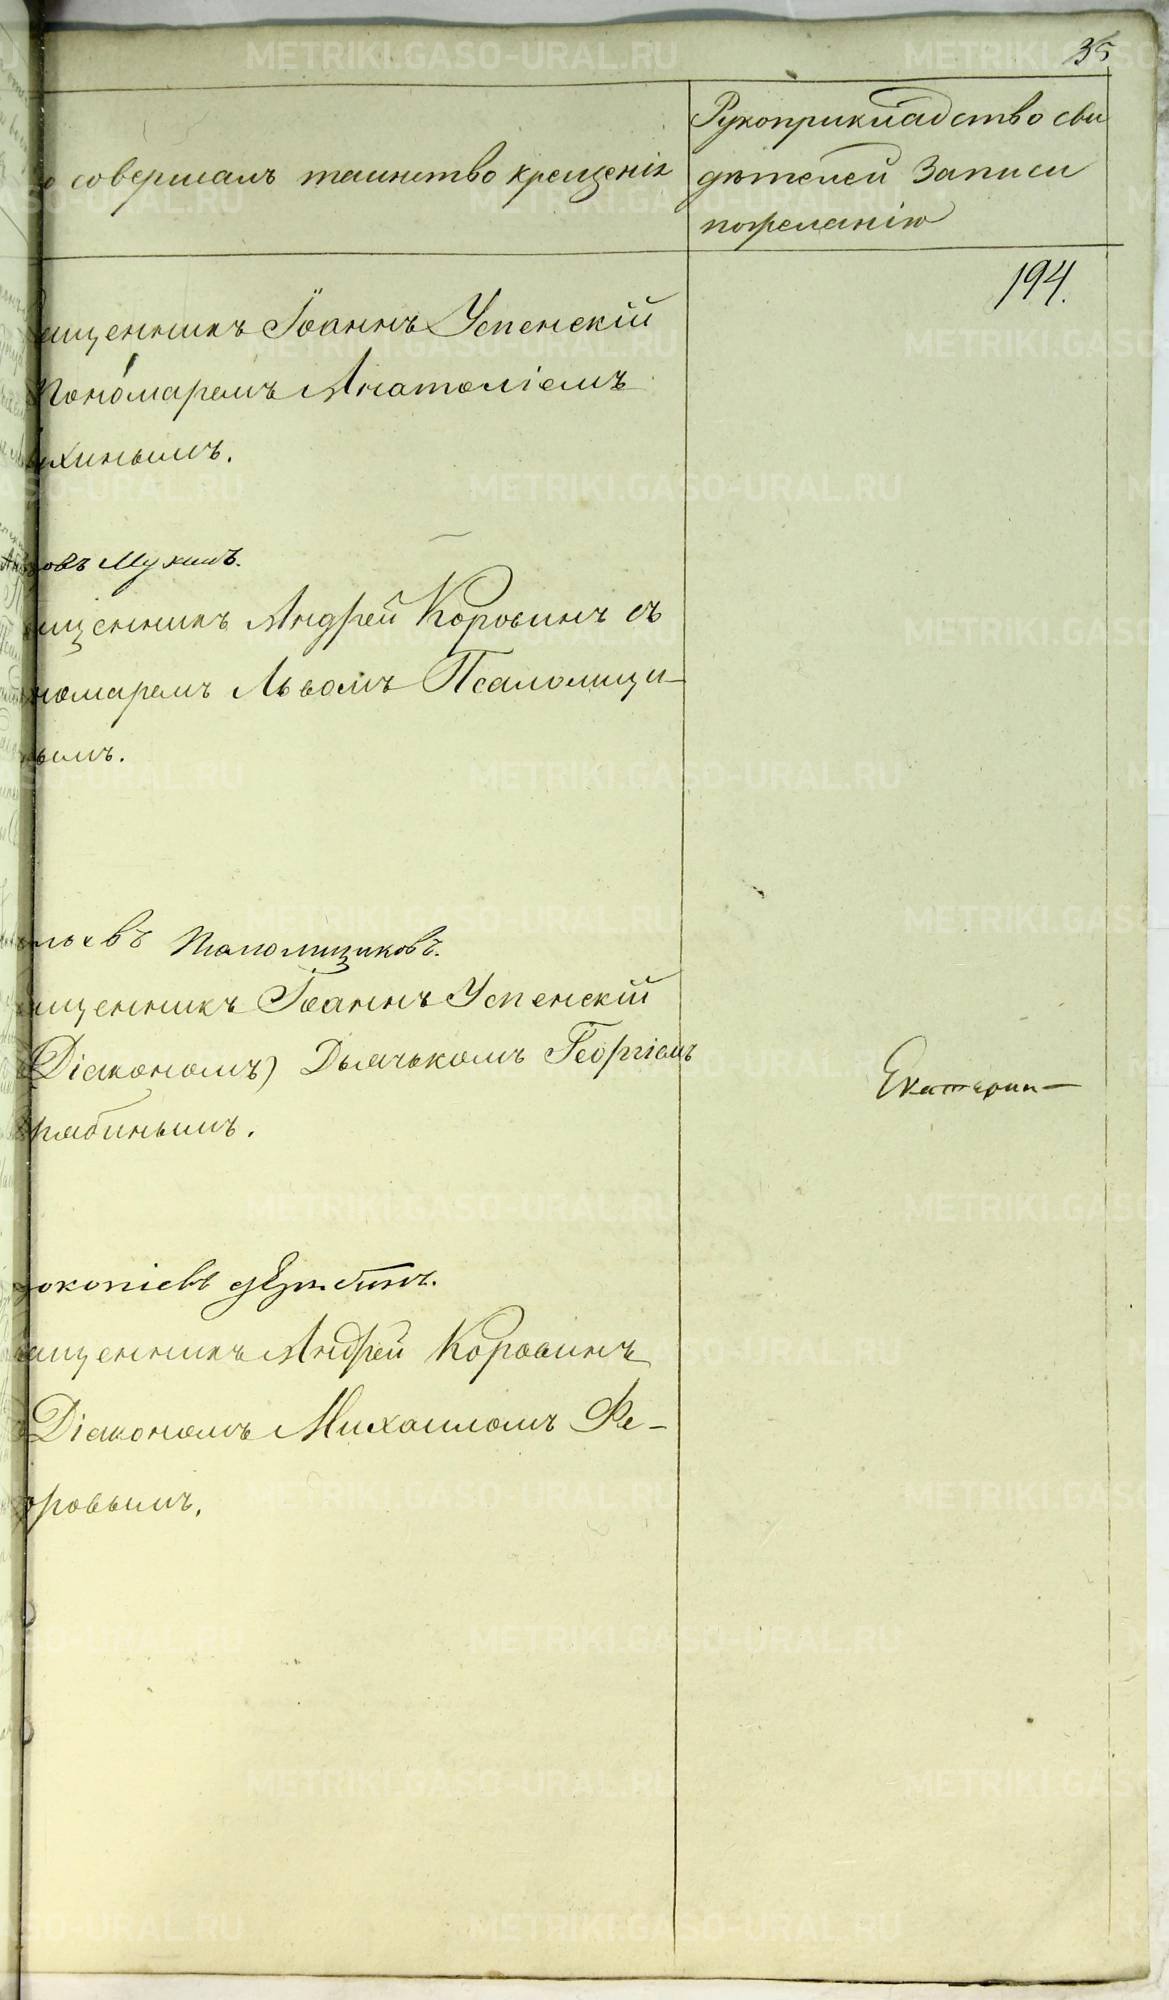 35
о совершалъ таинство крещенія
Рукоприкладство сви
дѣтелей Записи
по желанію
194.
ященникъ Іоаннъ Успенскій
Пономаремъ Анатоліемъ
хинымъ.
овъ Мухинъ.
ященникъ Андрей Коровинъ съ
номаремъ Львомъ Псаломщи-
нымъ.
Паломщиковъ.
ященникъ Іоаннъ Успенскій
Діакономъ) Дьячькомъ Георгіемъ
Рябинымъ.
Екатерин-
окопіевъ
ященникъ Андрей Коровинъ
Діакономъ Михаиломъ Фе-
оровымъ.
METRIKI.GASO-URAL.RU